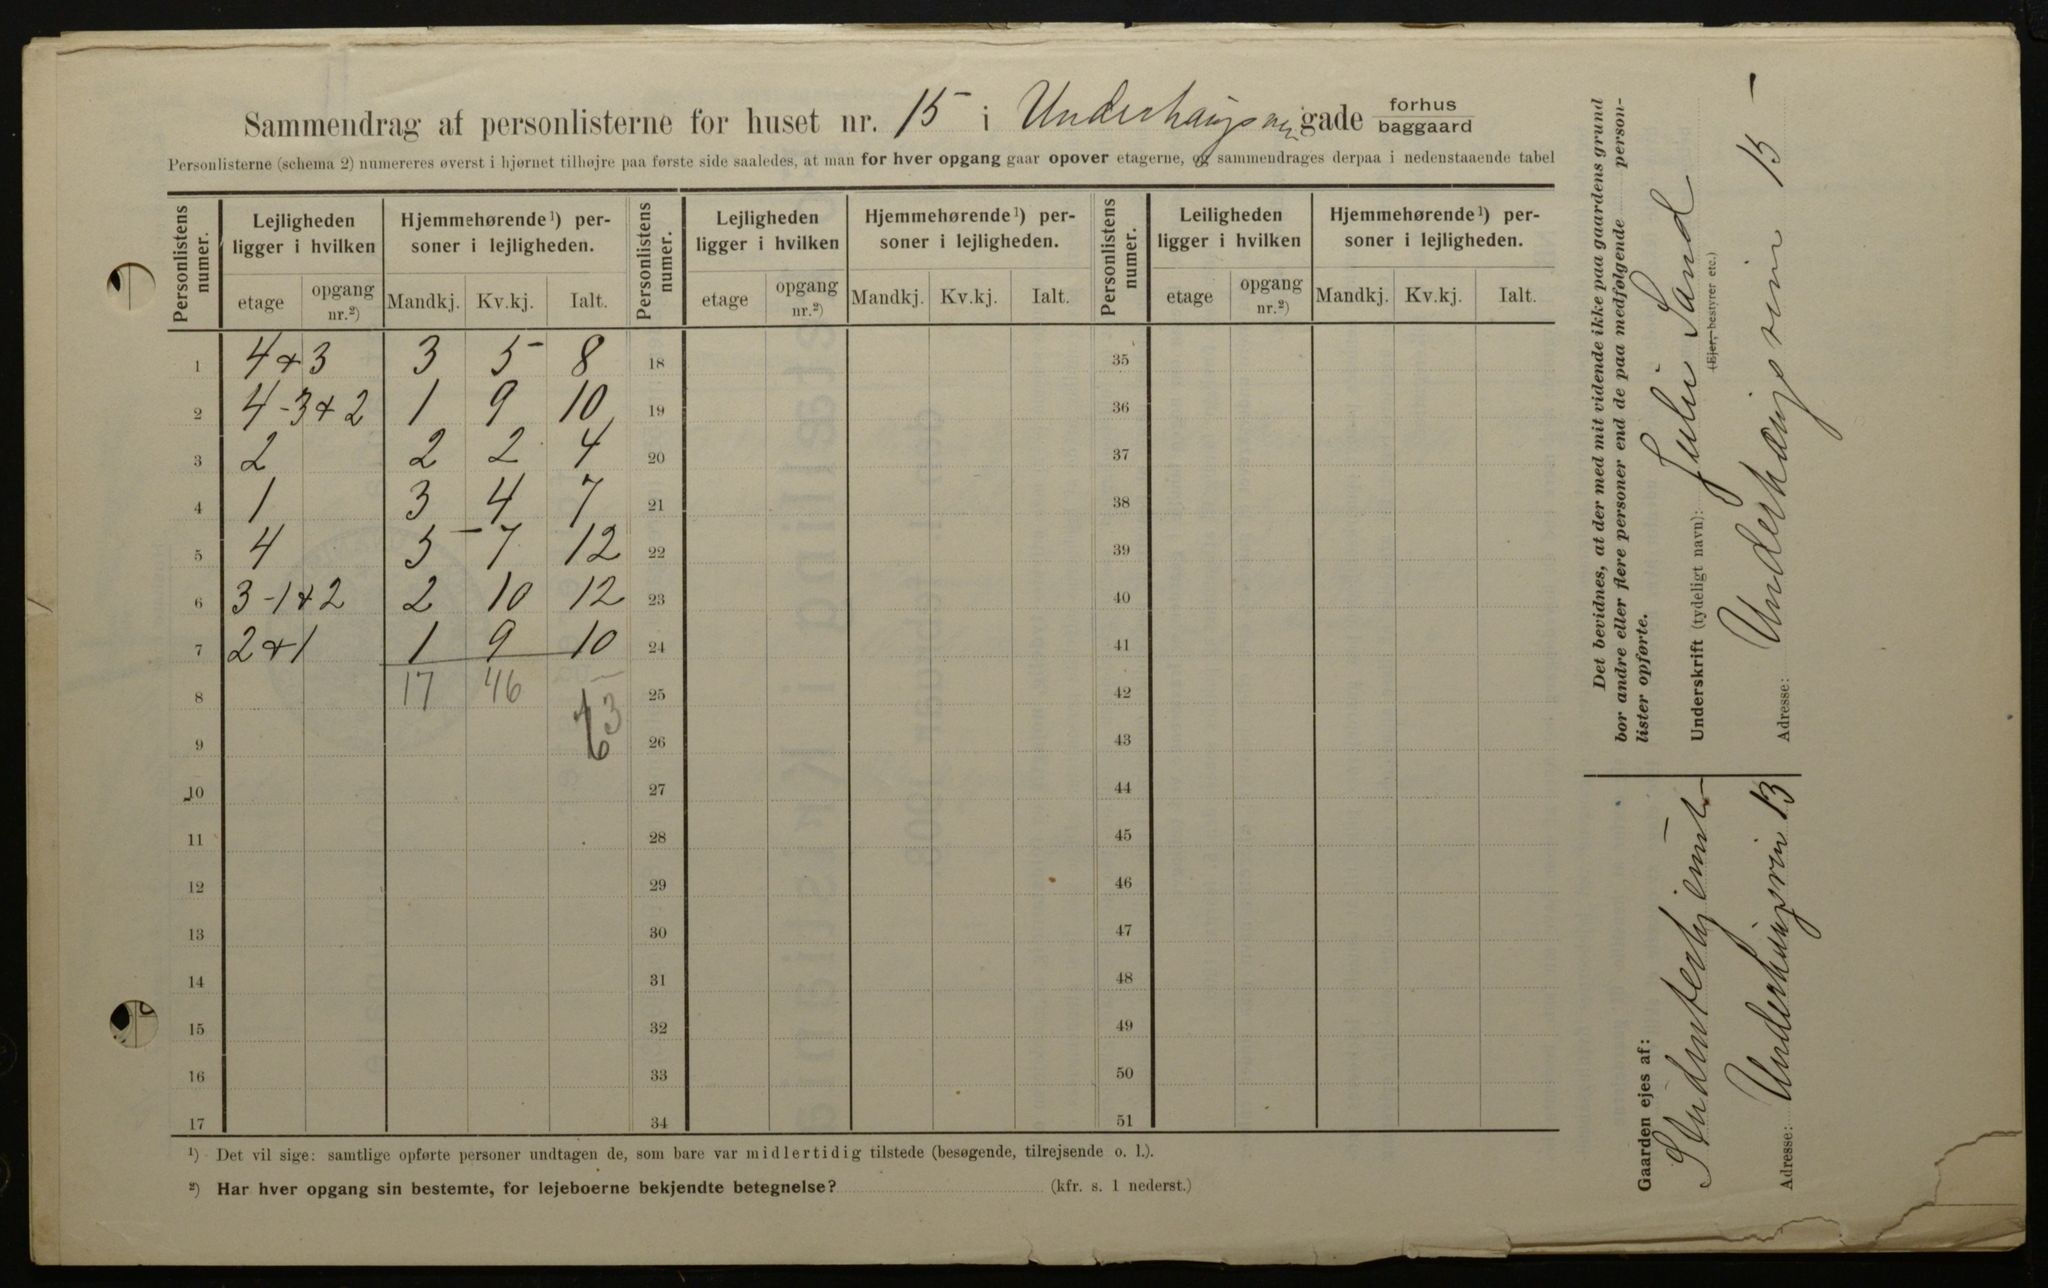 Sammendrag af personlisterne for huset nr. 15 i Underhaugsvn gade forhus baggaard
Personlisterne (schema 2) numereres øverst i hjørnet tilhøjre paa første side saaledes, at man for hver opgang gaar opover etagerne, og sammendrages derpaa i nedenstaaende tabel
Personlistens numer. Lejligheden ligger i hvilken Hjemmehørende ¹) personer i lejligheden. Personlistens numer. Lejligheden ligger i hvilken Hjemmehørende ¹) personer i lejligheden. Personlistens numer. Leiligheden ligger i hvilken Hjemmehørende ¹) personer i lejligheden.
etage opgang nr.²) Mandkj. Kv.kj. Ialt. etage opgang nr.²) Mandkj. Kv.kj. Ialt. etage opgang nr.²) Mandkj. Kv.kj. Ialt.
1 4+3 3 5 8 18 35
2 4-3+2 1 9 10 19 36
3 2 2 2 4 20 37
4 1 3 4 7 21 38
5 4 5 7 12 22 39
6 3-1+2 2 10 12 23 40
7 2+1 1 9 10 24 41
8 17 46 25 42
9 63 26 43
10 27 44
11 28 45
12 29 46
13 30 47
14 31 48
15 32 49
16 33 50
17 34 51
¹) Det vil sige: samtlige opførte personer undtagen de, som bare var midlertidig tilstede (besøgende, tilrejsende o. l.).
²) Har hver opgang sin bestemte, for lejeboerne bekjendte betegnelse? (kfr. s. 1 nederst.)
Det bevidnes, at der med mit vidende ikke paa gaardens grund
bor andre eller flere personer end de paa medfølgende person-
lister opførte.
Underskrift (tydeligt navn): Juli Sand
(Ejer, bestyrer etc.)
Adresse: Underhaugsvein 15
Gaarden ejes af:
Studenterhjemmet
Adresse: Underhaugsvein 13